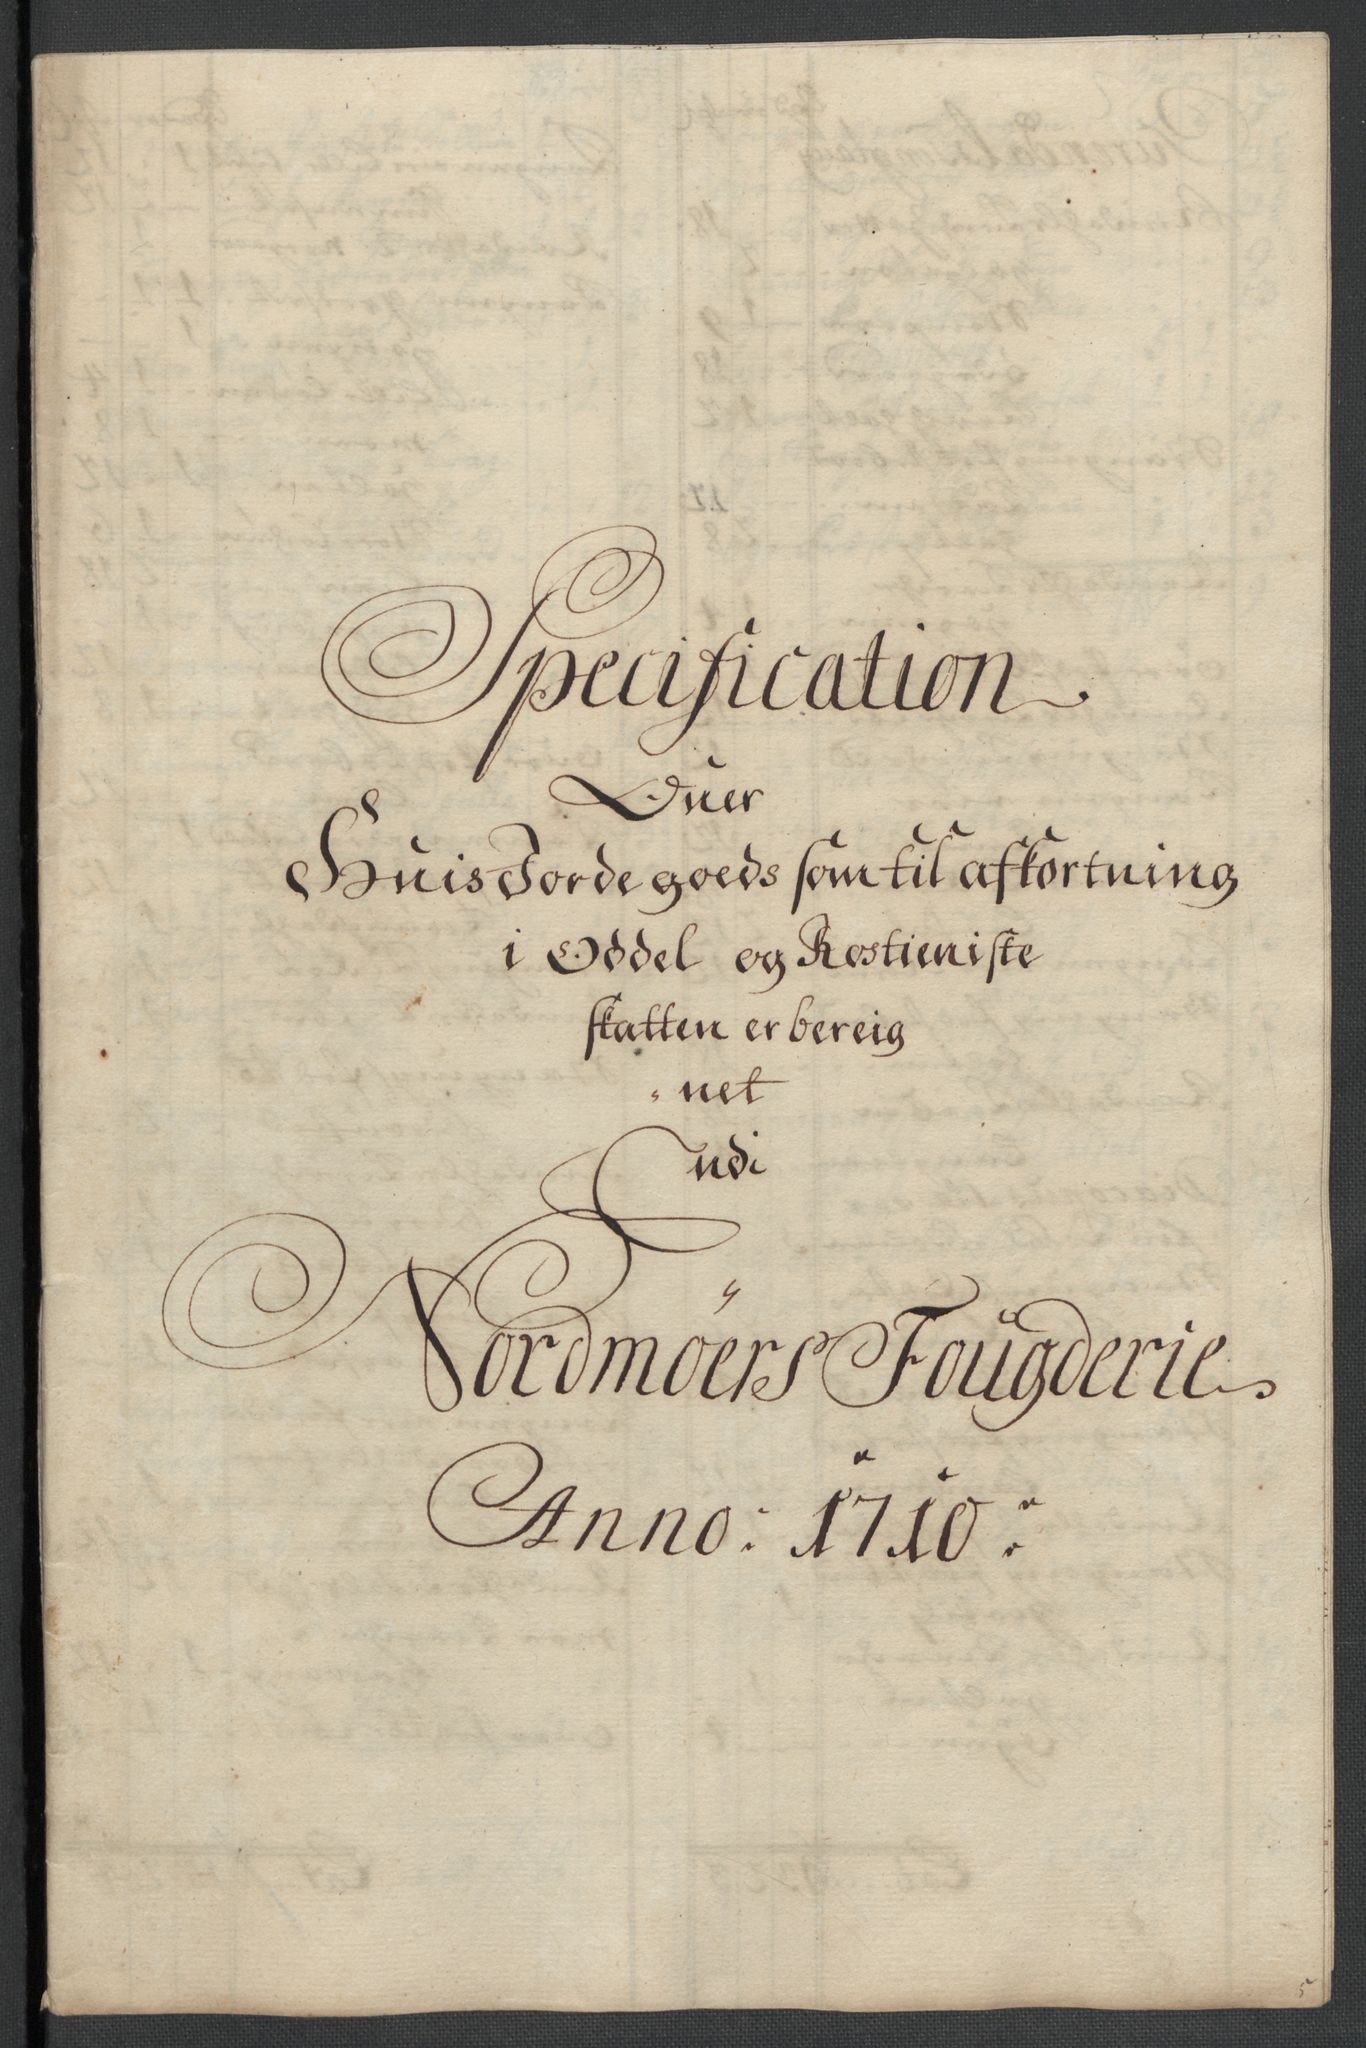 Specification
Ouer
Huis Jordegoeds som til afkortning
i Oddel og Rostieniste
skatten er bereig
net
Udi
Nordmöers Fougderie
Anno: 1710:
5